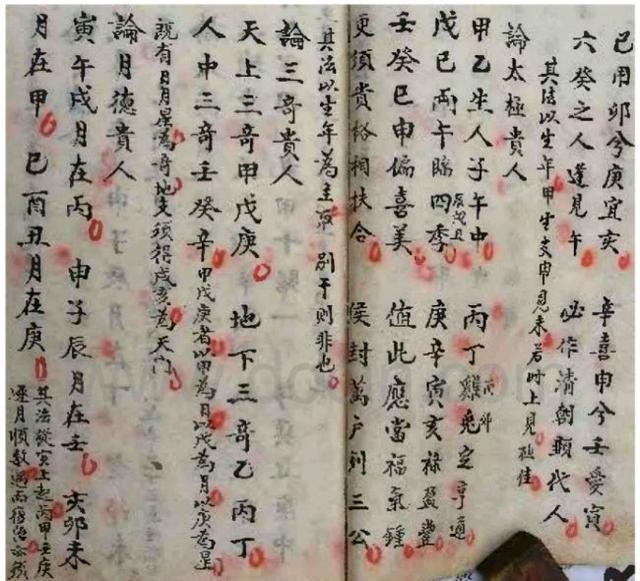 巳用卯兮庚宜亥 辛喜申兮壬愛寅
六癸之人逢見午 必作清朝顯代人
其法以生年甲生支申見未若時上見極佳
論太極貴人
甲乙生人子午中 丙丁雞兎定亨通
辰戌丑 丙卯
戊巳兩午臨四季 庚辛寅亥祿盈豐
壬癸巳申偏喜美 值此應當福氣鍾
更須貴格相扶合 候封萬户列三公
其法以生年為主 別干則非也
論三奇貴人
天上三奇甲戊庚 地下三奇乙丙丁
人中三奇壬癸辛 甲戊庚者以甲為日以戊為月以庚為星
既有日月星為奇地支須得戌亥為天門
論月德貴人
寅午戌月在丙 申子辰月在壬 亥卯未
月在甲 巳酉丑月在庚 其法從寅上起丙甲壬庚
逐月順數